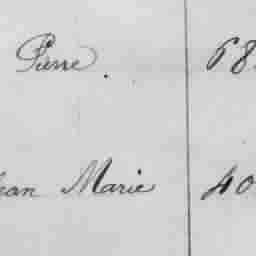 Pierre 68
Jean Marie 40